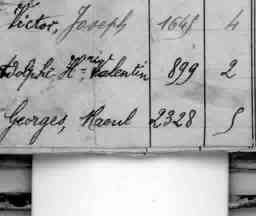 Victor, Joseph 1645 4
Adolphe Hri Valentin 899 2
Georges, Raoul 2328 5